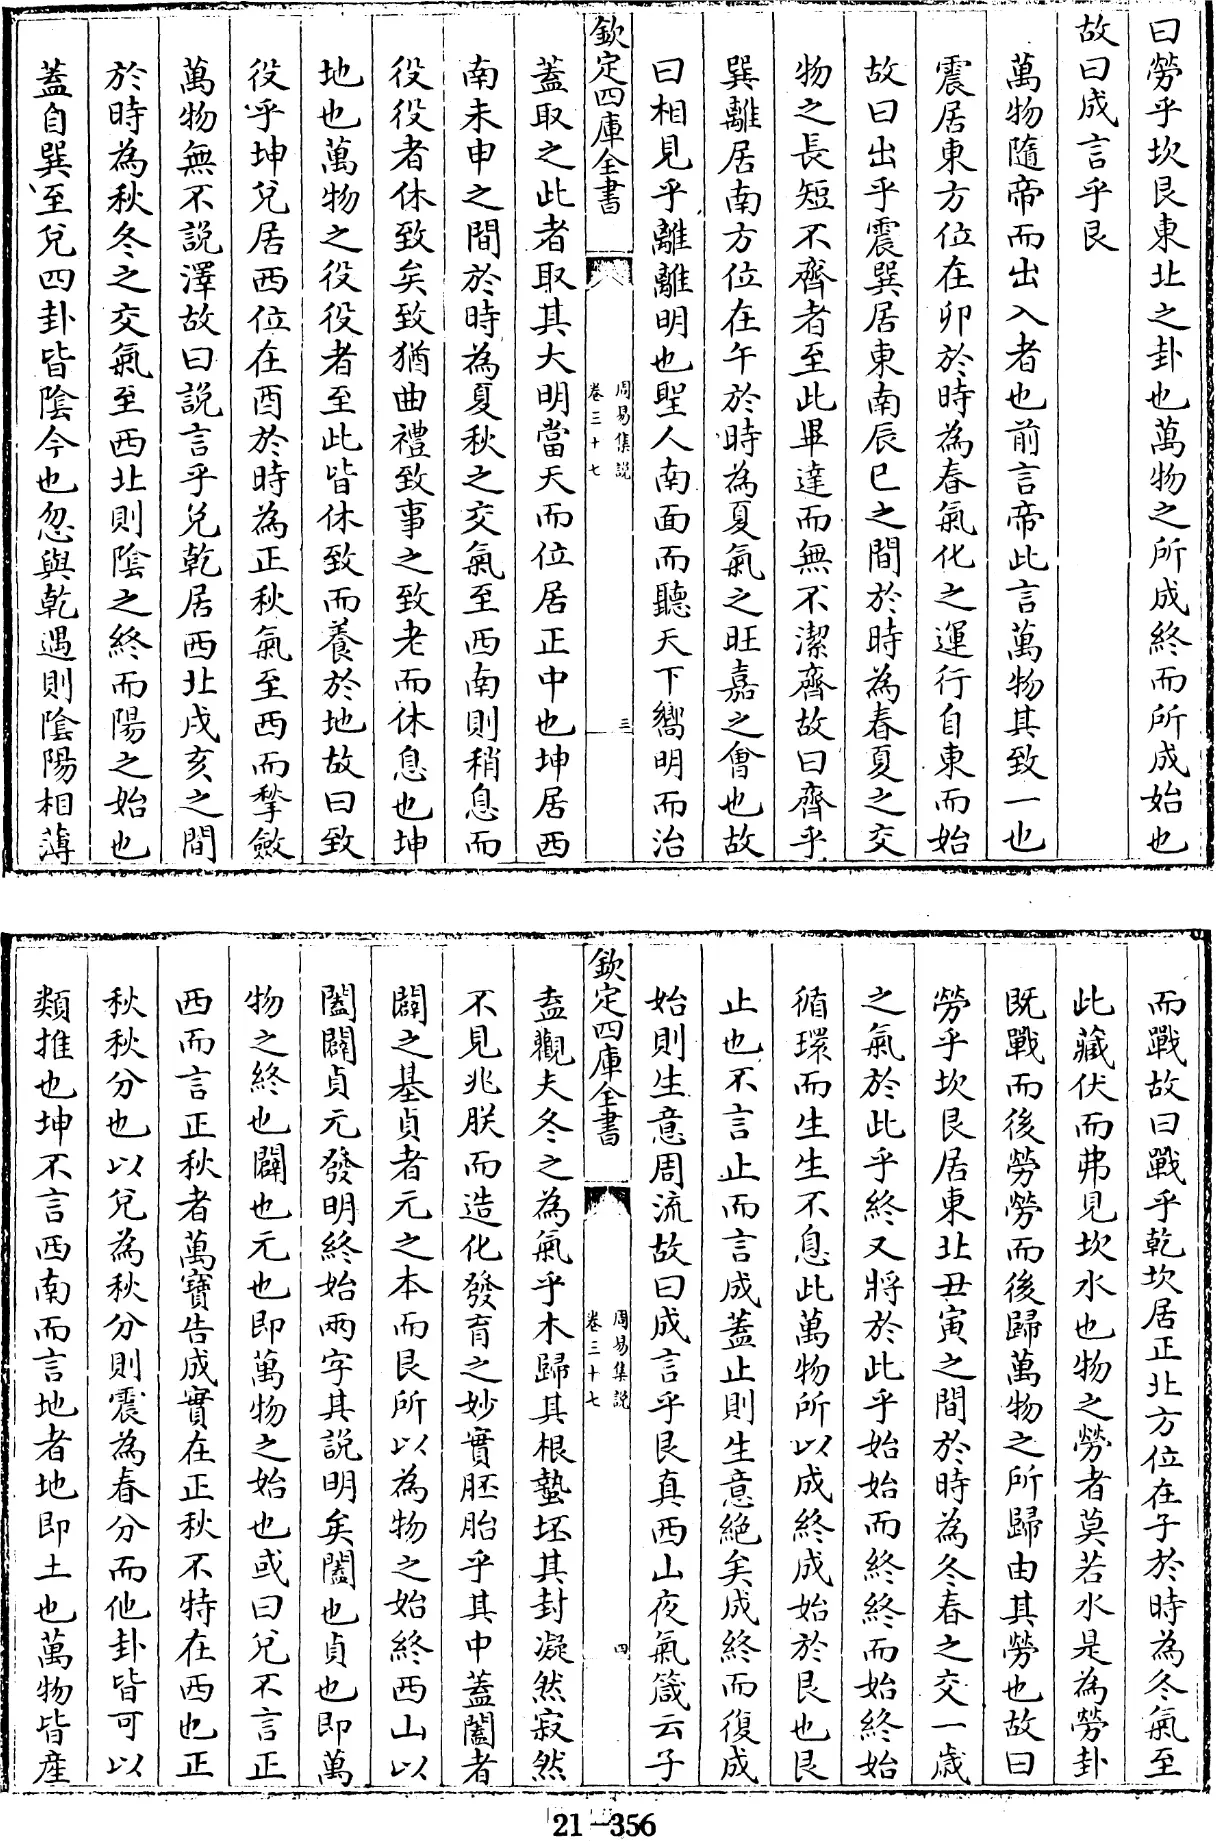 曰勞乎坎艮東北之卦也萬物之所成終而所成始也
故曰成言乎艮
萬物隨帝而出入者也前言帝此言萬物其致一也
震居東方位在卯於時為春氣化之運行自東而始
故曰出乎震巽居東南辰巳之間於時為春夏之交
物之長短不齊者至此畢達而無不潔齊故曰齊乎
巽離居南方位在午於時為夏氣之旺嘉之會也故
曰相見乎離離明也聖人南面而聽天下嚮明而治
欽定四庫全書
周易集說
卷三十七
三
蓋取之此者取其大明當天而位居正中也坤居西
南未申之間於時為夏秋之交氣至西南則稍息而
役役者休致矣致猶曲禮致事之致老而休息也坤
地也萬物之役役者至此皆休致而養於地故曰致
役乎坤兌居西位在酉於時為正秋氣至西而揫斂
萬物無不說澤故曰說言乎兌乾居西北戌亥之間
於時為秋冬之交氣至西北則陰之終而陽之始也
蓋自巽至兌四卦皆陰今也忽與乾遇則陰陽相薄
而戰故曰戰乎乾坎居正北方位在子於時為冬氣至
此藏伏而弗見坎水也物之勞者莫若水是為勞卦
既戰而後勞勞而後歸萬物之所歸由其勞也故曰
勞乎坎艮居東北丑寅之間於時為冬春之交一歲
之氣於此乎終又將於此乎始始而終終而始終始
循環而生生不息此萬物所以成終成始於艮也艮
止也不言止而言成蓋止則生意絕矣成終而復成
始則生意周流故曰成言乎艮真西山夜氣箴云子
欽定四庫全書
周易集說
卷三十七
四
盍觀夫冬之為氣乎木歸其根蟄坯其封凝然寂然
不見兆朕而造化發育之妙實胚胎乎其中蓋闔者
闢之基貞者元之本而艮所以為物之始終西山以
闔闢貞元發明終始兩字其說明矣闔也貞也即萬
物之終也闢也元也即萬物之始也或曰兌不言正
西而言正秋者萬寶告成實在正秋不特在西也正
秋秋分也以兌為秋分則震為春分而他卦皆可以
類推也坤不言西南而言地者地即土也萬物皆產
21-356